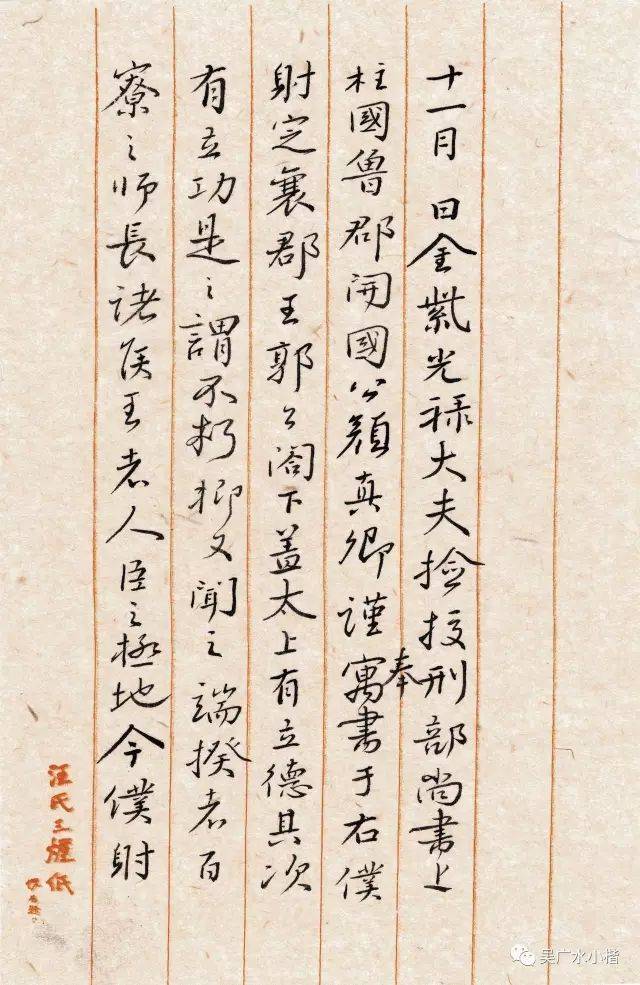 十一月　日金紫光禄大夫捡挍刑部尚書上
柱國魯郡開國公顏真卿謹奉寓書于右僕
射定襄郡王郭公閤下盖太上有立德其次
有立功是之謂不朽抑又聞之端揆者百
寮之師長諸侯王者人臣之極地今僕射
吴广水小楷